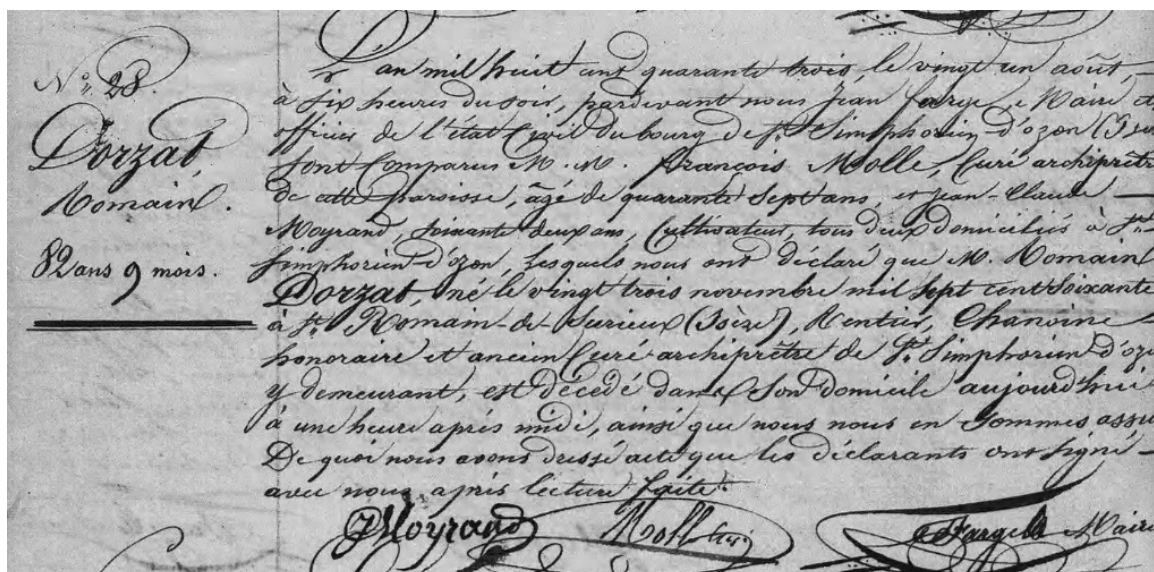 N.° 28.
Dorzat,
Romain.
82 ans 9 mois.
L'an mil huit cent quarante trois, le vingt un août, —
à six heures du soir, pardevant nous Jean Farge, Maire et
officier de l'état Civil du bourg de S.t Simphorien-d'ozon (Isère
sont Comparus M. M. François Molle, Curé archiprêtre
de cette paroisse, âgé de quarante Sept ans, et Jean-Claude —
Moyrand, soixante deux ans, Cultivateur, tous deux domiciliés à S.t
Simphorien-d'ozon, lesquels nous ont déclaré que M. Romain
Dorzat, né le vingt trois novembre mil sept cent soixante
à S.t Romain-de-Surieux (Isère), Rentier, Chanoine —
honoraire et ancien Curé archiprêtre de S.t Simphorien d'ozon
y demeurant, est décédé dans son domicile aujourd'hui
à une heure après midi, ainsi que nous nous en sommes assu
De quoi nous avons dressé acte que les déclarants ont signé —
avec nous après lecture faite.
JMoyrand Molle Curé Farge Maire